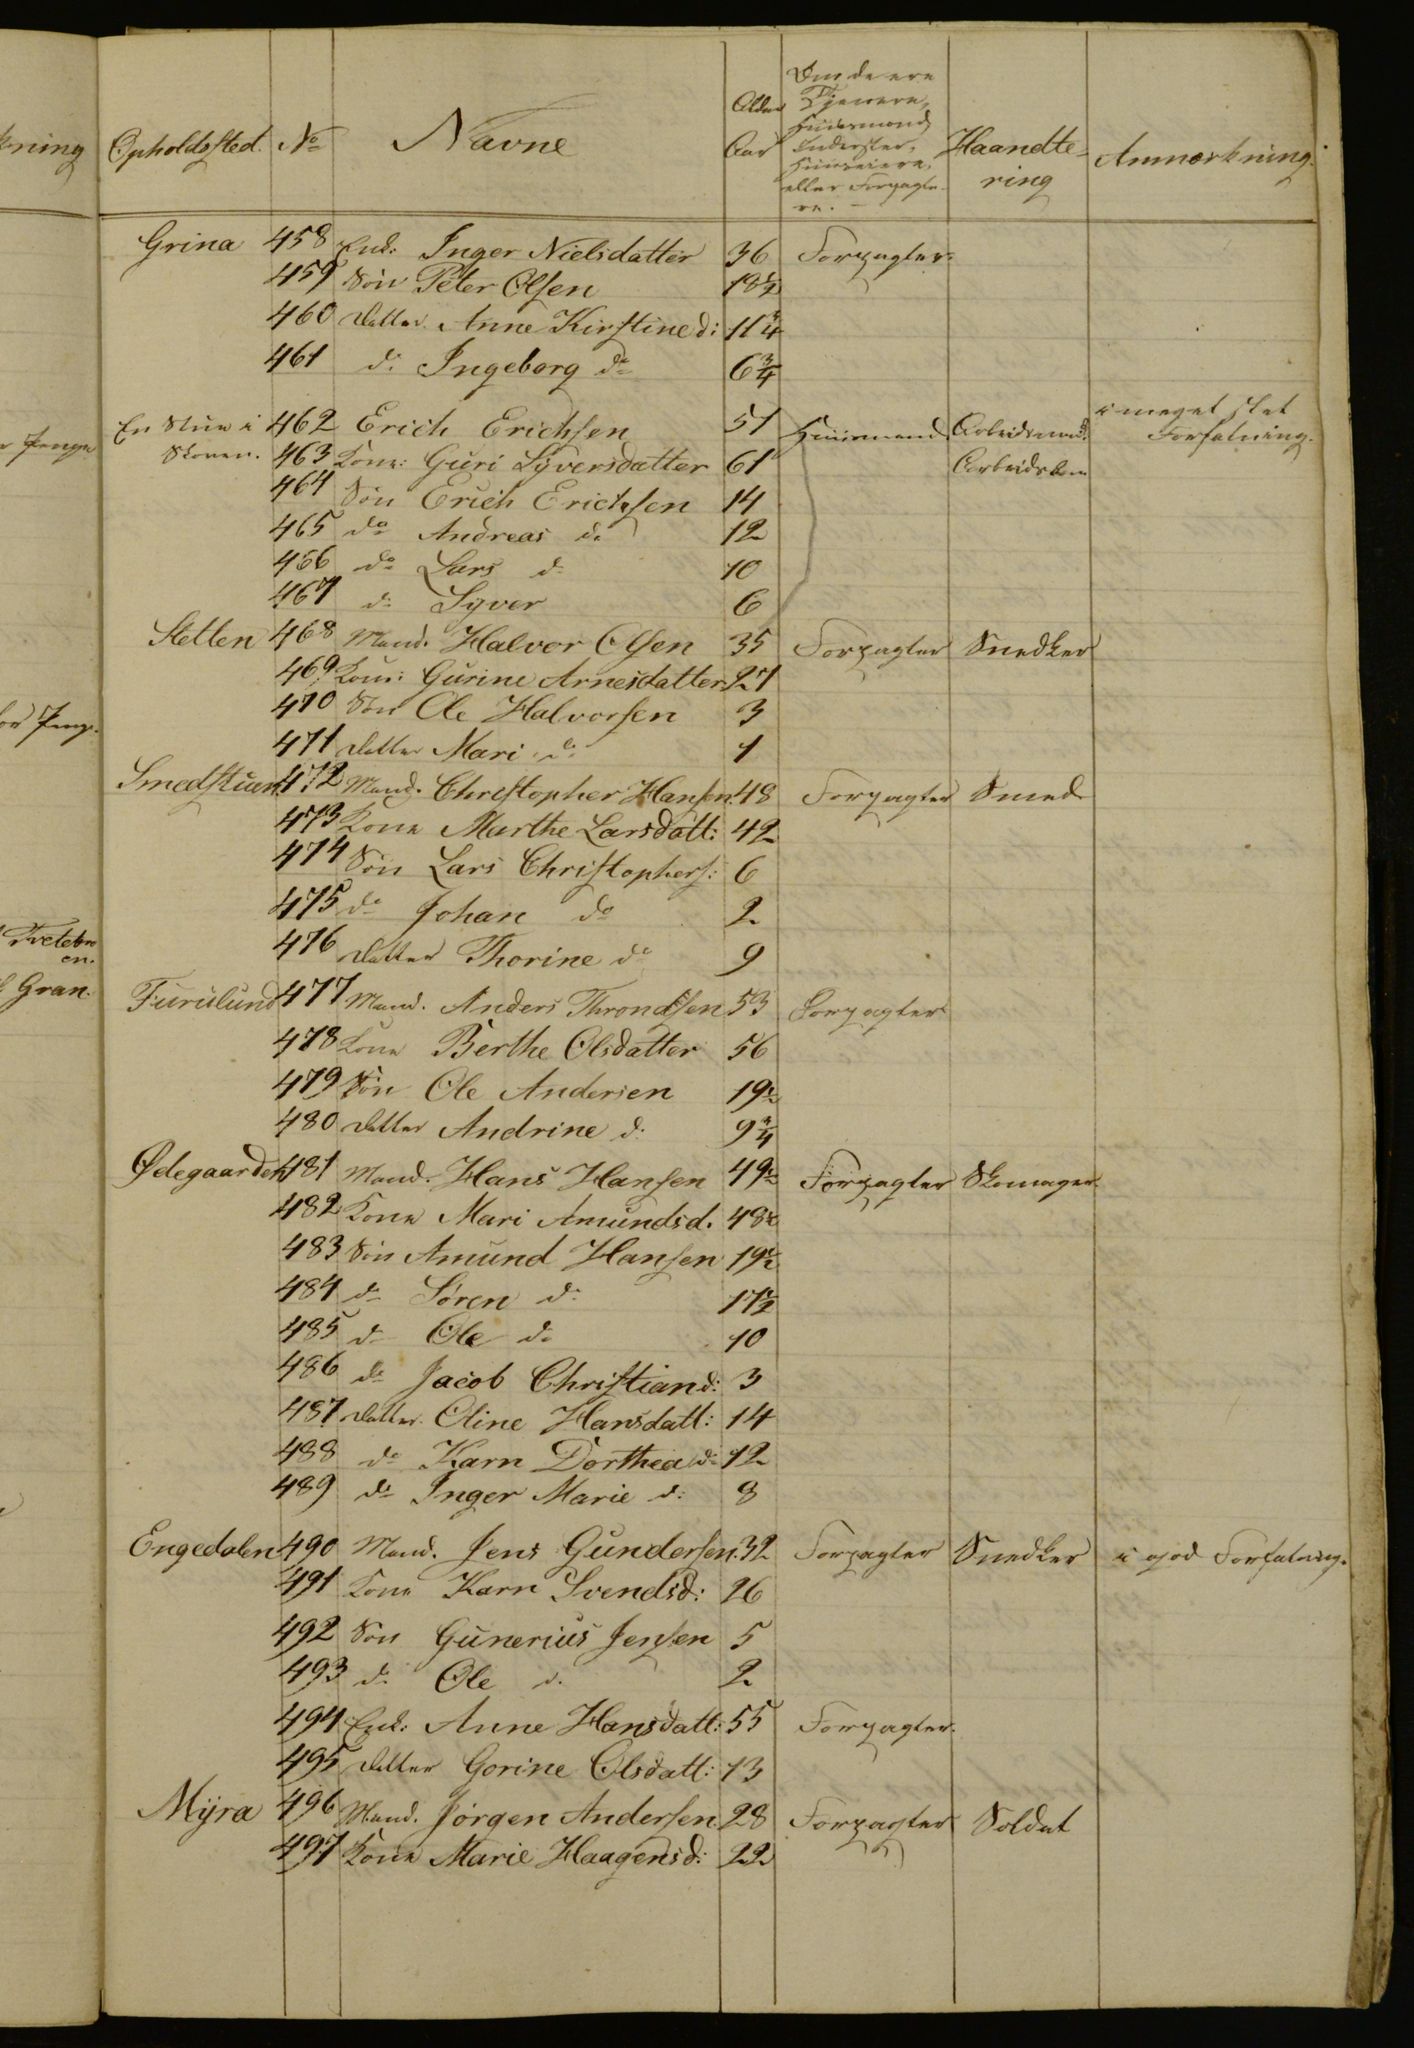 Opholdssted. No Navne Alder Aar Om de ere Tjenere, Huusmænd Inderster, Huuseiere, eller Forpagtere. Haandtering Anmærkning.
Grina 458 Enk: Inger Nielsdatter 36 Forpagter
459 Søn Peter Olsen 18½
460 Datter Anne Kirstine do: 11¾
461 do Ingeborg do 6¾
En Stue i 462 Erich Erichsen 51 Huusmand Arbeidsmand. i meget slet
Skoven. 463 Kone: Guri Syversdatter 61 Forfatning.
464 Søn Erich Erichsen 14
465 do Andreas do 12
466 do Lars do 10
467 do Syver 6
Stetten 468 Mand. Halvor Olsen 35 Forpagter Snedker
469 Kone: Gurine Arnesdatter 27
470 Søn Ole Halvorsen 3
471 Datter Mari do 1
Smedstuen 472 Mand. Christopher Hansen 48 Forpagter Smed
473 Kone Marthe Larsdatt: 42
474 Søn Lars Christophers: 6
475 do Johan do 2
476 Datter Thorine do 9
Furulund 477 Mand. Anders Throndsen 53 Forpagter
478 Kone Berthe Olsdatter 56
479 Søn Ole Andersen 19½
480 Datter Andrine do: 9¾
Ødegaarden 481 Mand. Hans Hansen 49½ Forpagter Skomager
482 Kone Mari Amundsd. 48½
483 Søn Amund Hansen 19½
484 do Søren do 17½
485 do Ole do 10
486 do Jacob Christian do: 3
487 Datter. Oline Hansdatt: 14
488 do Karn Dorthea do 12
489 do Inger Marie do: 8
Engedalen 490 Mand. Jens Gundersen. 32 Forpagter Snedker i god Forfatning.
491 Kone Karn Svendsd: 26
492 Søn Gunerius Jensen 5
493 do Ole do 2
494 Enk: Anne Hansdatt: 55 Forpagter.
495 Datter Gorine Olsdatt: 13
Myra 496 Mand. Jørgen Andersen 28 Forpagter Soldat
497 Kone Marie Haagensd: 22